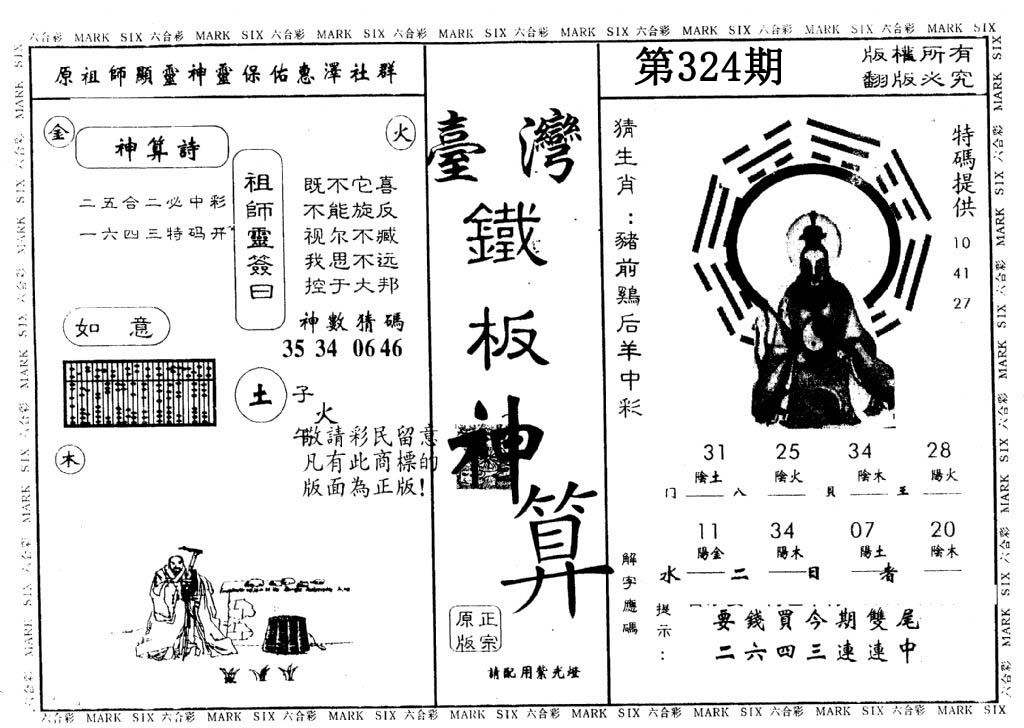 六合彩 MARK SIX 六合彩 MARK SIX 六合彩 MARK SIX 六合彩 MARK SIX 六合彩 MARK SIX 六合彩 MARK SIX 六合彩 MARK SIX 六合彩 MARK SIX
原祖師顯靈神靈保佑惠澤社群
金
神算詩
火
二五合二必中彩
一六四三特码开
祖師靈簽曰
既不它喜
不能旋反
视尔不臧
我思不远
控于大邦
神數猜碼
35 34 06 46
如 意
土
子
火
午
木
敬請彩民留意
凡有此商標的
版面為正版!
臺灣
鐵
板
神
算
正宗
原版
請配用紫光燈
第324期
版權所有
翻版必究
猜生肖:豬前鷄后羊中彩
特碼提供
10
41
27
31 25 34 28
陰土 陰火 陰木 陽火
门 八 貝 王
11 34 07 20
陽金 陽木 陽土 陰木
水 二 日 者
解字應碼
提示:
要錢買今期雙尾
二六四三連連中
六合彩 MARK SIX 六合彩 MARK SIX 六合彩 MARK SIX 六合彩 MARK SIX 六合彩 MARK SIX 六合彩 MARK SIX 六合彩 MARK SIX 六合彩 MARK SIX